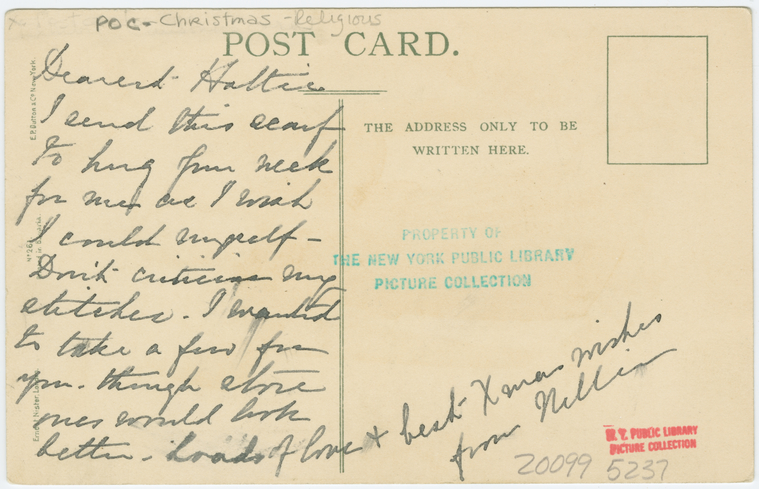 POC - Christmas - Religious
POST CARD.
Dearest Hattie
I send this scarf
to hug your neck
for me as I wish
I could myself -
Don't criticise my
stitches. I wanted
to take a few for
you - though store
ones would look
better - Loads of love & best Xmas wishes
from Nellie
THE ADDRESS ONLY TO BE
WRITTEN HERE.
PROPERTY OF
THE NEW YORK PUBLIC LIBRARY
PICTURE COLLECTION
E.P. Dutton & Co. New York.
Ernest Nister London
N. Y. PUBLIC LIBRARY
PICTURE COLLECTION
20099 5237